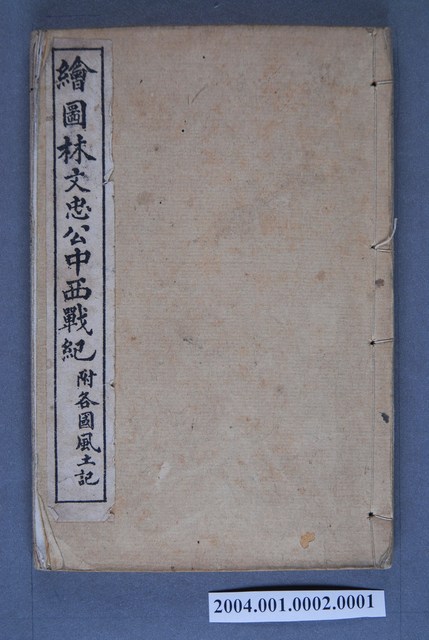 繪圖林文忠公中西戰紀
附各國風土記
2004.001.0002.0001